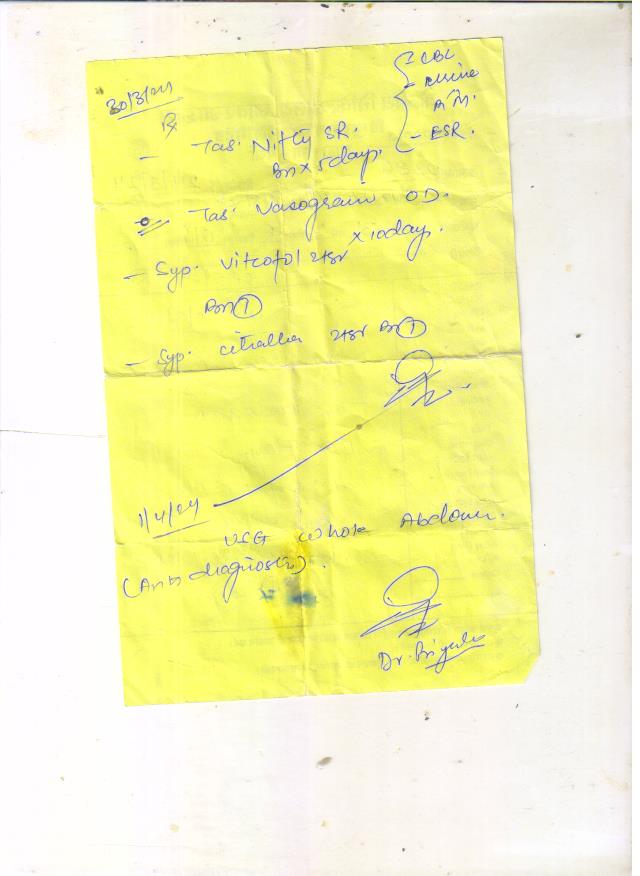 30/3/24
{ CBC
- Urine
R/M.
- ESR.
Rx
- Tab. Nifty SR.
BD x 5 days.
- Tab. Vasograin OD.
x 10 days.
- Syp. Vitcofol 2tsf
BD ①
- Syp. Citralka 2tsf BD ①
1/4/24
USG Whole Abdomen.
(
diagnostic).
Dr.